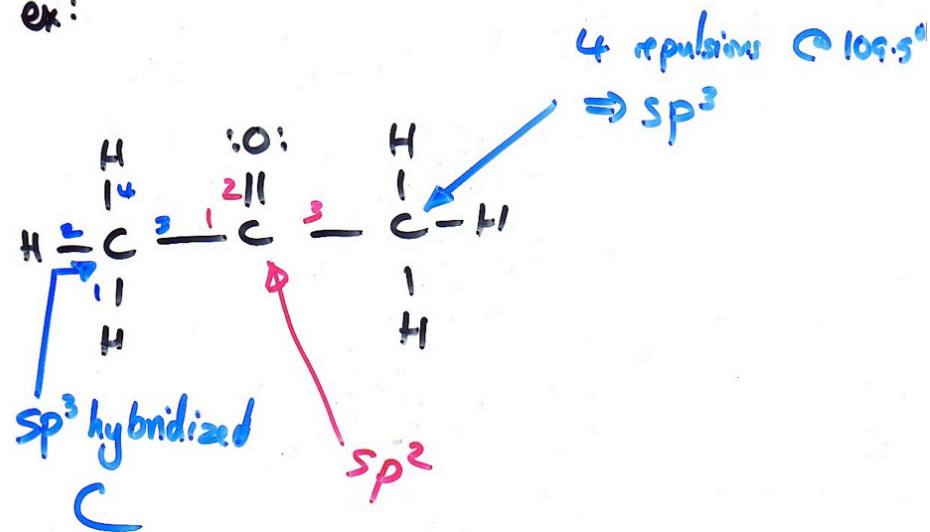 ex:
4 repulsions @ 109.5°
⇒ sp³
H :O: H
|4 2|| |
H 2– C 3 — 1 C 3 — C – H
1| |
H H
sp³ hybridized
C
sp²